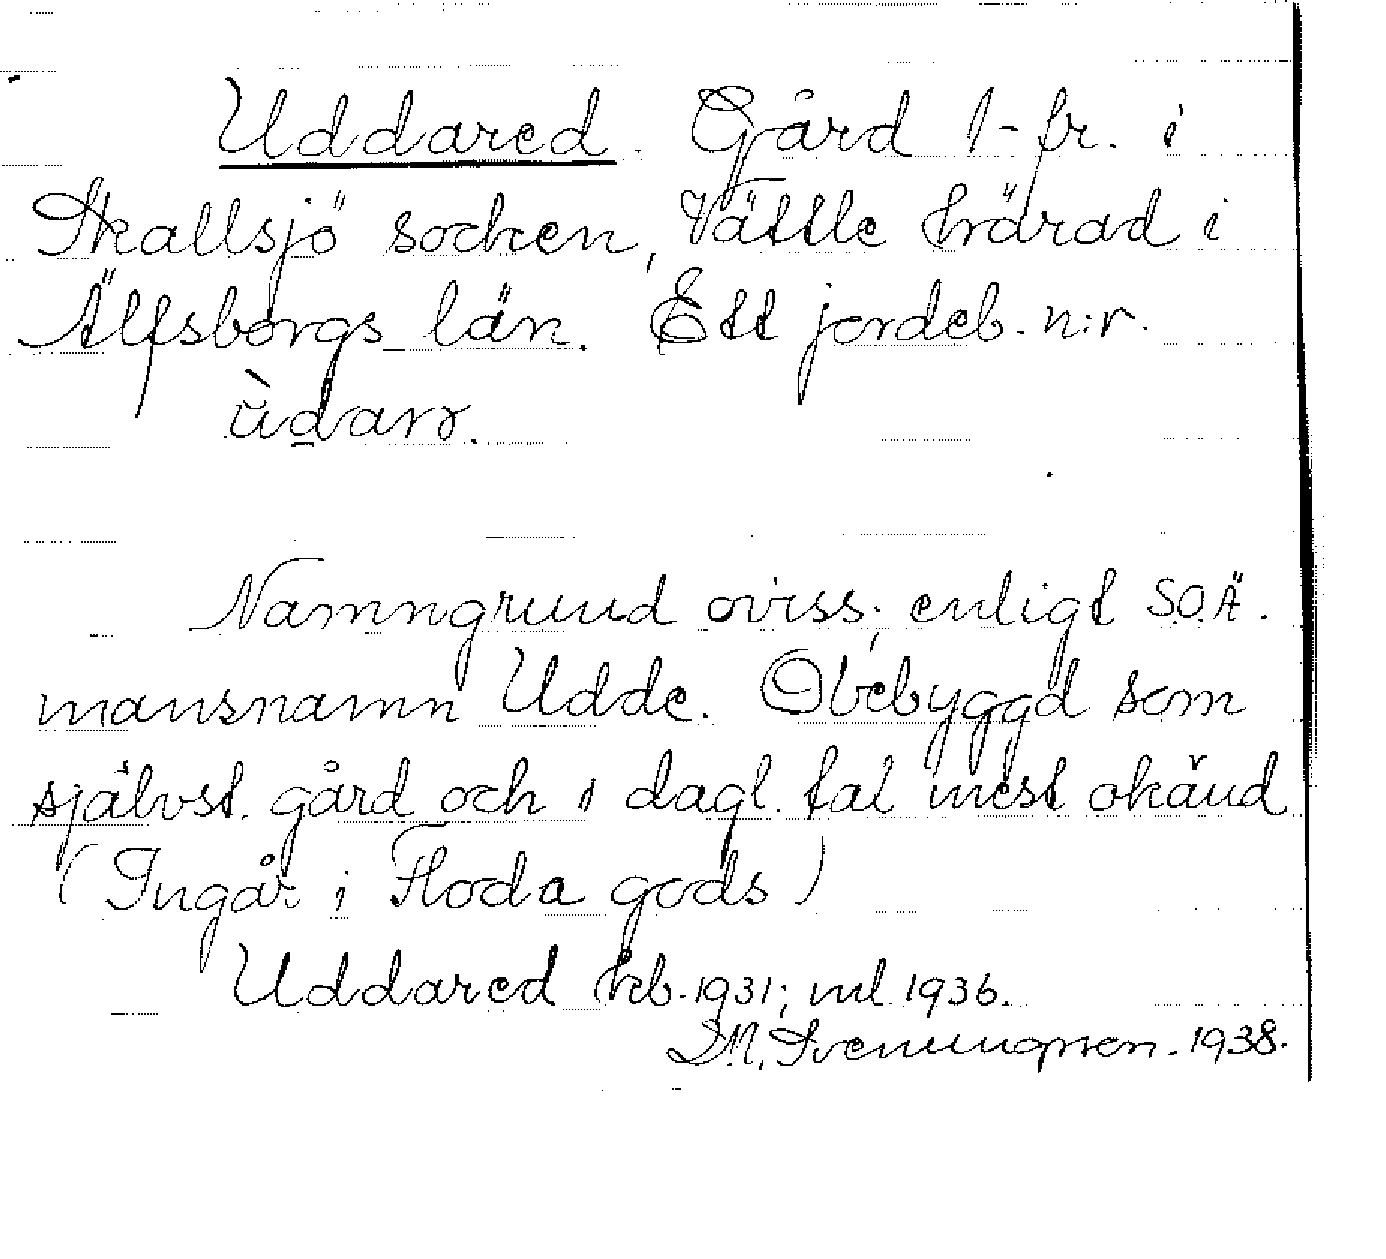 Uddared. Gård 1-fr. i
Skallsjö socken, Vättle härad i
Älfsborgs län. Ett jordeb. n:r.
Namngrund oviss; enligt S.O.Ä.
mansnamn Udde. Obebyggd som
självst. gård och i dagl. tal mest okänd
(Ingår i Floda gods)
Uddared kb. 1931; ml 1936.
D.M. Svenungsson. 1938.